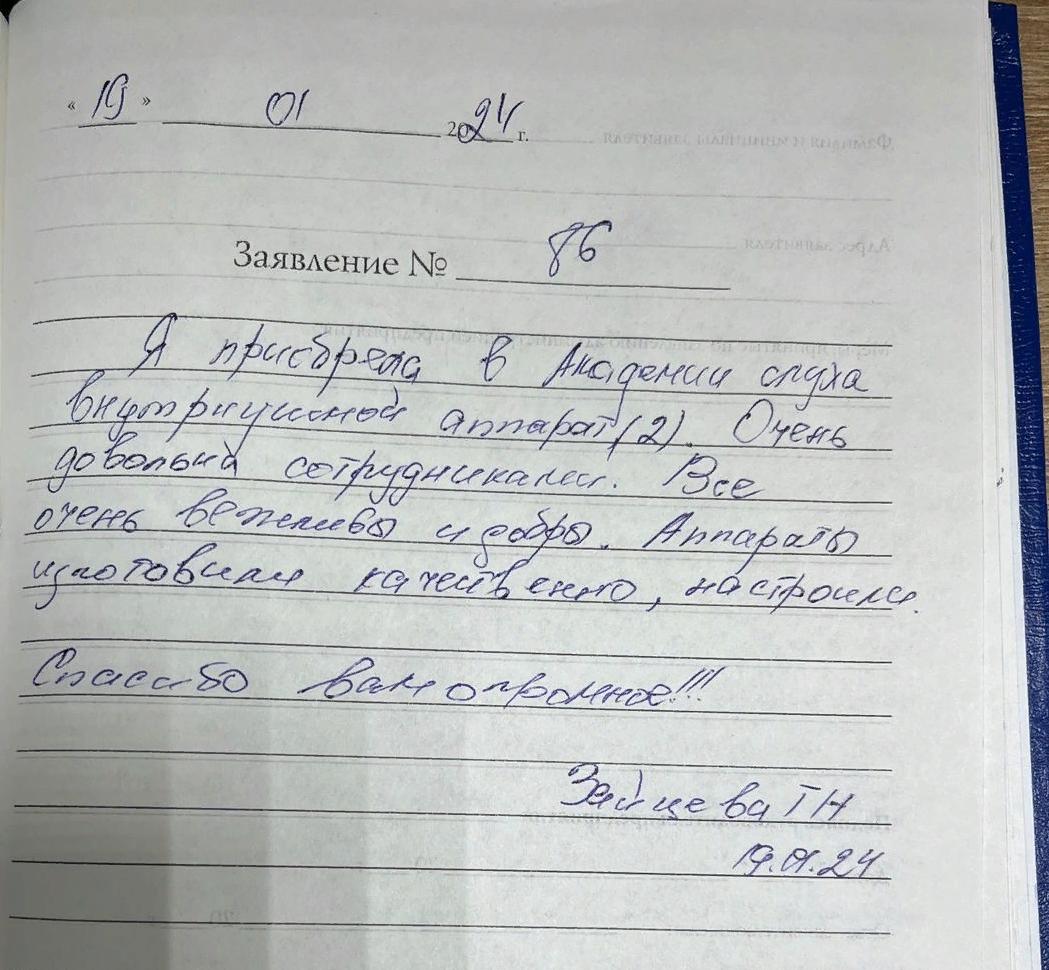 « 19 » 01 2024 г.
Заявление № 86
Я приобрела в Академии слуха
внутриушной аппарат (2). Очень
довольна сотрудниками. Все
очень вежливы и добры. Аппараты
изготовили качественно, настроили.
Спасибо вам огромное!!!
Зайцева ТН
19.01.24